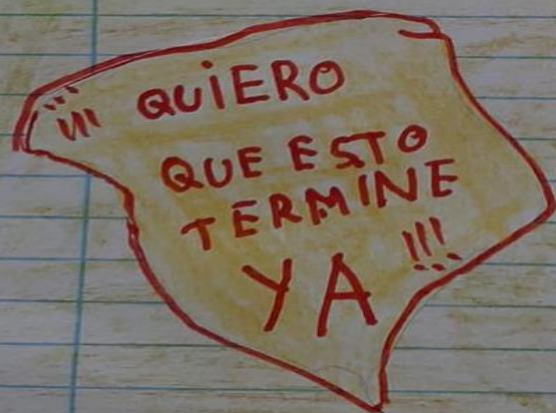 ¡¡¡ QUiERO
QUE ESTO
TERMINE
YA !!!